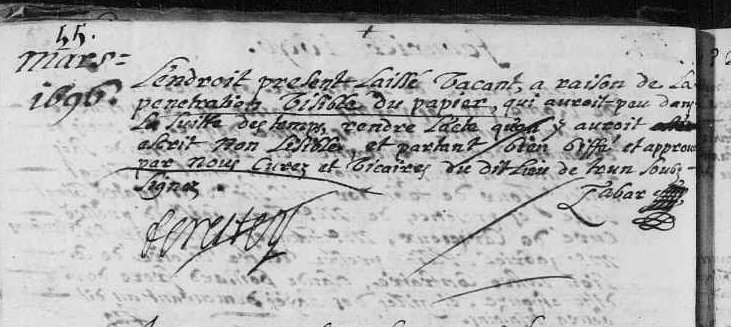 55.
mars=
1696.
L'endroit present Laissé Vacant, a raison de La
penetration Visible du papier, qui auroit peu dans
La suitte des temps, rendre L'acte quon y auroit
escrit Non Lisible, et partant bien biffé et approuvé
par Nous Curez et Vicaires du dit Lieu de soubz=
signez.
Tabar